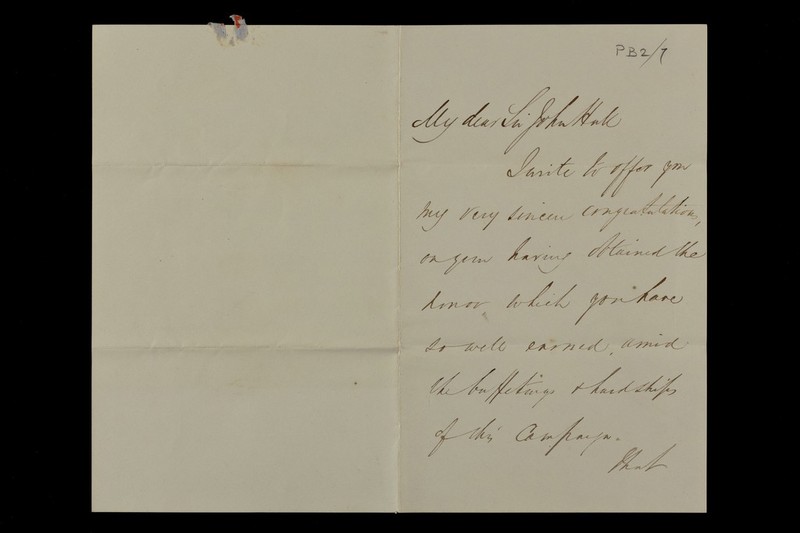 PB2/7
My dear Sir John Hall
I write to offer you
my very sincere congratulations,
on your having obtained the
honor which you have
so well earned, amid
the buffetings & hardships
of this Campaign.
That